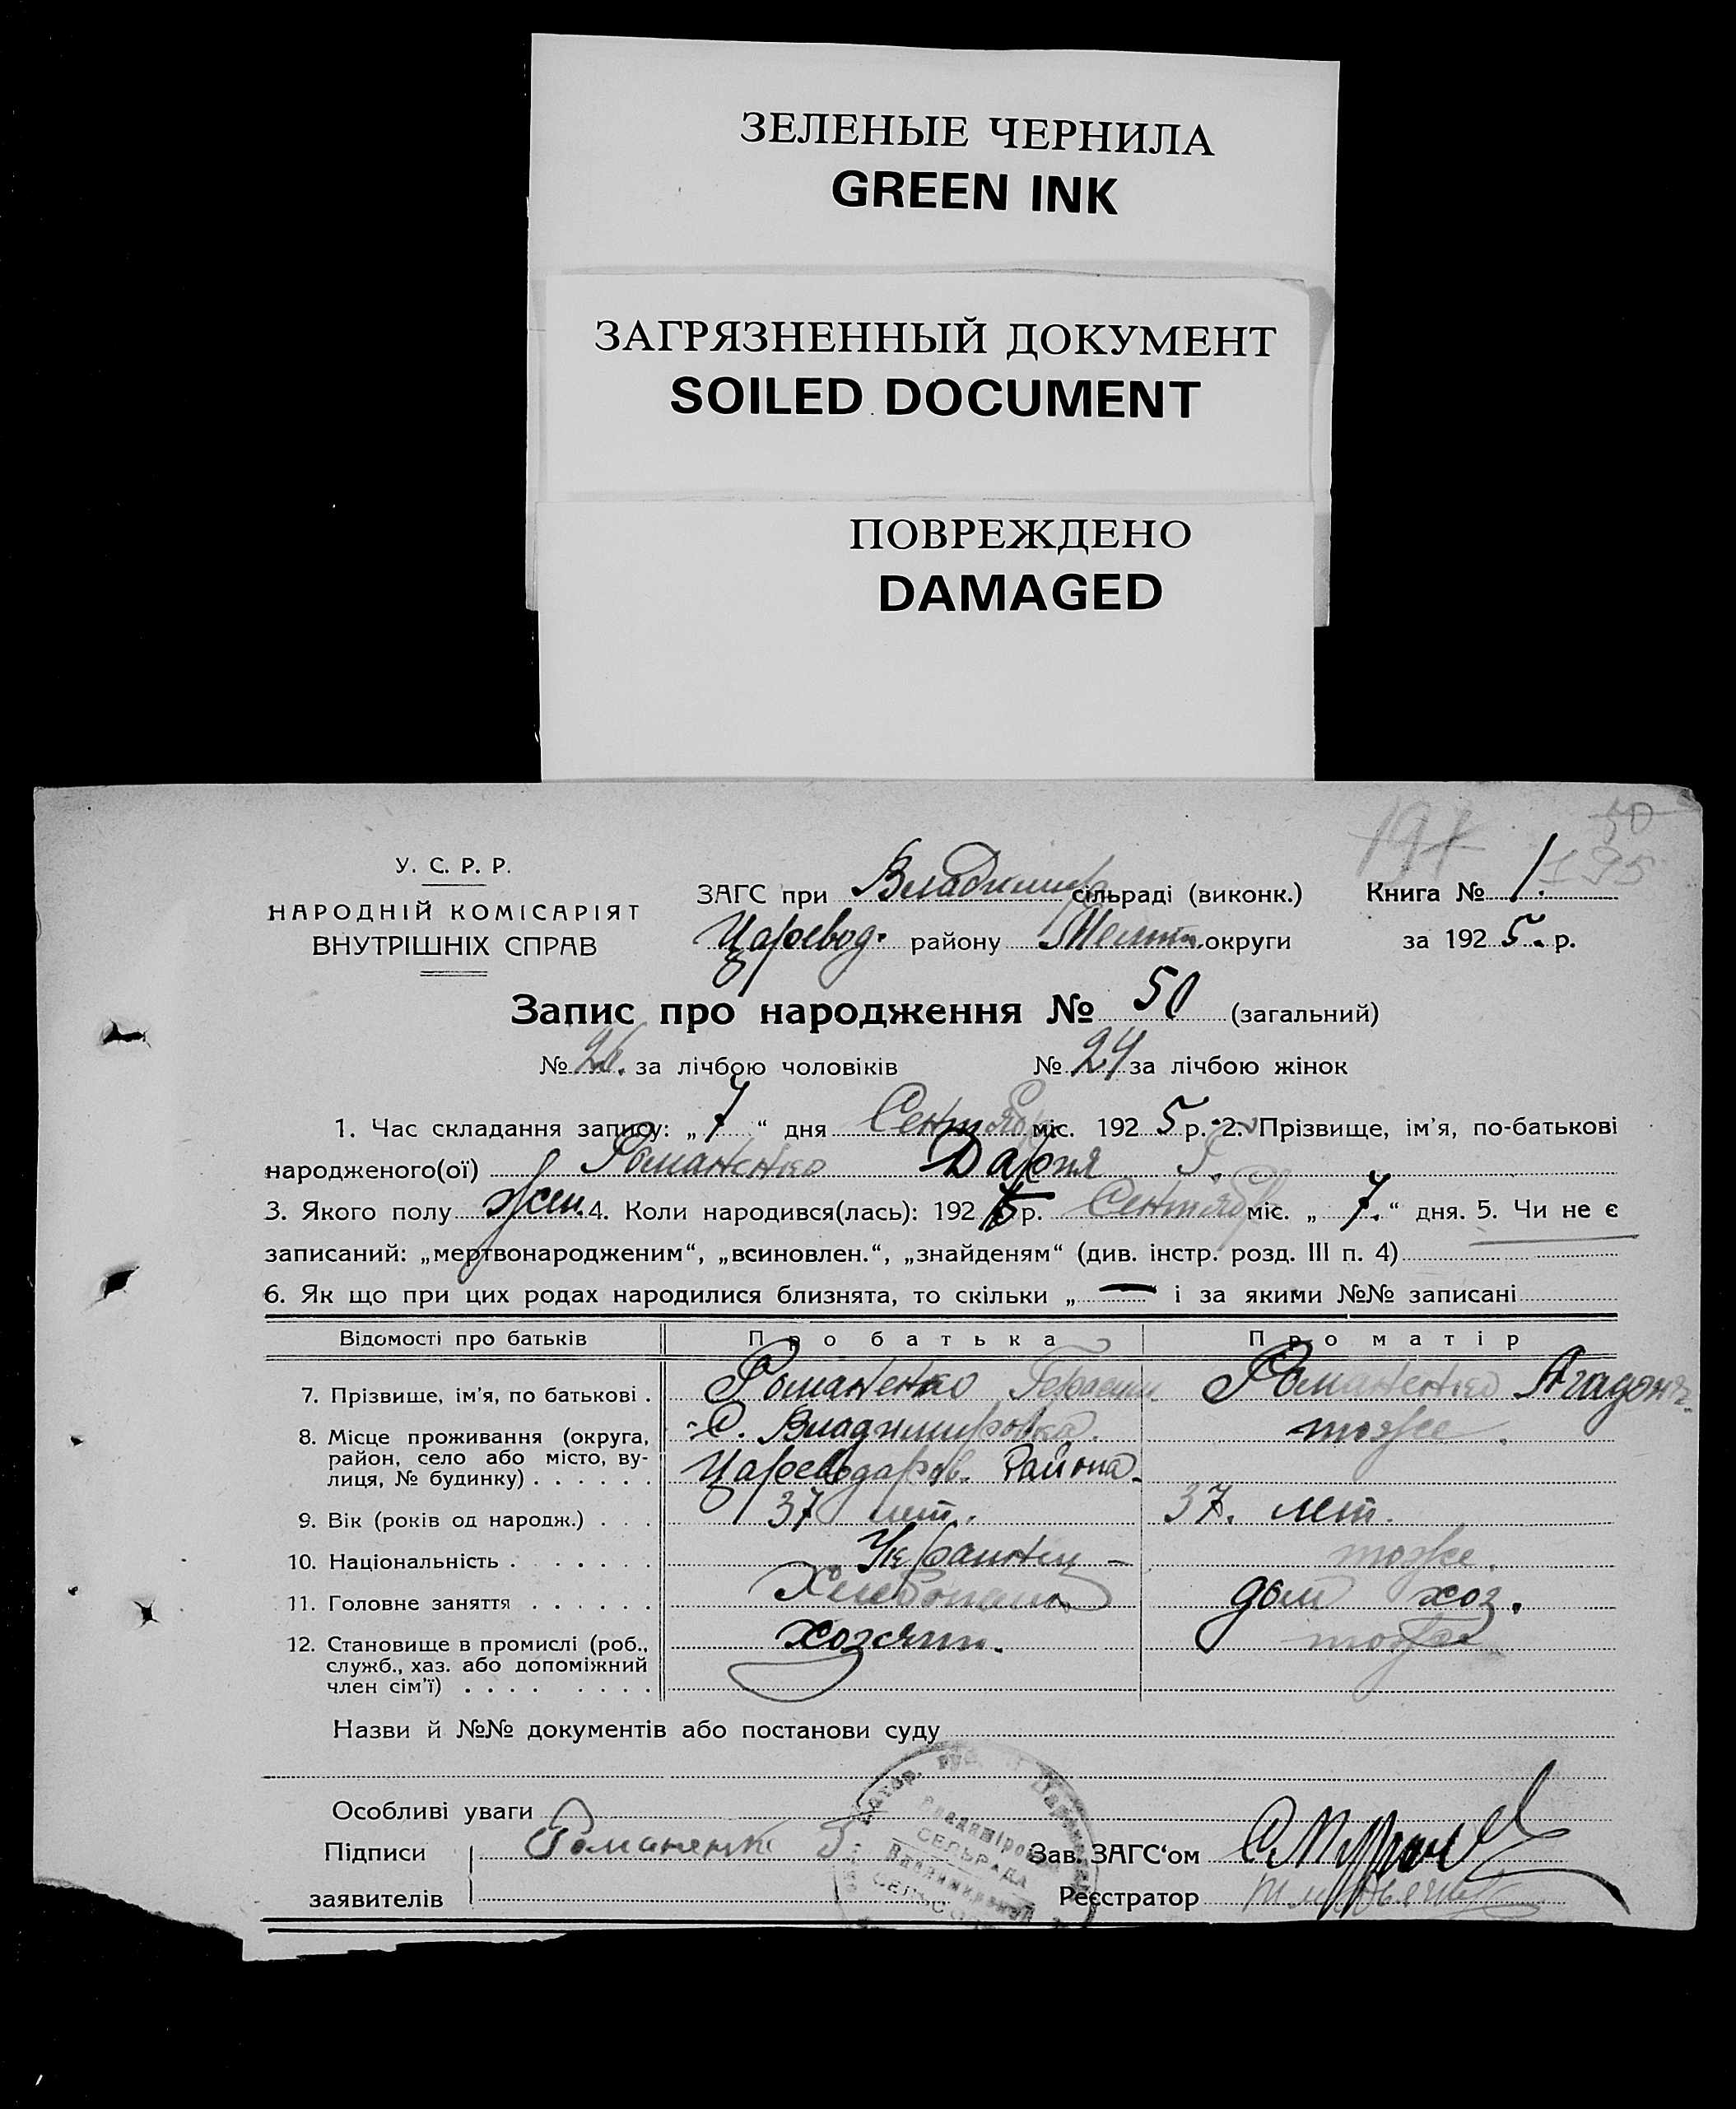 ЗЕЛЕНЫЕ ЧЕРНИЛА
GREEN INK
ЗАГРЯЗНЕННЫЙ ДОКУМЕНТ
SOILED DOCUMENT
ПОВРЕЖДЕНО
DAMAGED
50
191 195
У. С. Р. Р.
НАРОДНІЙ КОМІСАРІЯТ
ВНУТРІШНІХ СПРАВ
ЗАГС при Владимир сільраді (виконк.) Книга № 1.
Царевод. району Мелит. округи за 192 5. р.
Запис про народження № 50 (загальний)
№ 26. за лічбою чоловіків № 24 за лічбою жінок
1. Час складання запису: „ 7 “ дня Сентябр міс. 192 5 р. 2. Прізвище, ім'я, по-батькові
народженого(ої) Романенко Дария
3. Якого полу жен. 4. Коли народився(лась): 192 5 р. Сентябр міс. „ 7. “ дня. 5. Чи не є
записаний: „мертвонародженим“, „всиновлен.“, „знайденям“ (див. інстр. розд. III п. 4)
6. Як що при цих родах народилися близнята, то скільки „ — “ і за якими №№ записані
Відомості про батьків Про батька Про матір
7. Прізвище, ім'я, по батькові . Романенко Романенко
8. Місце проживання (округа, район, село або місто, вулиця, № будинку) . . . . . . с. Владимировка. тоже.
Цареводаров. Района.
9. Вік (років од народж.) . . . 37 лет. 37. лет.
10. Національність . . . . . . Украинец - тоже.
11. Головне заняття . . . . . . Хлебопаш дом хоз.
12. Становище в промислі (роб., служб., хаз. або допоміжний член сім'ї) . . . . . . . . хозяин. тоже
Назви й №№ документів або постанови суду
Особливі уваги
Підписи Романенк Зав. ЗАГС‘ом
заявителів Реєстратор
СЕЛЬРАДА